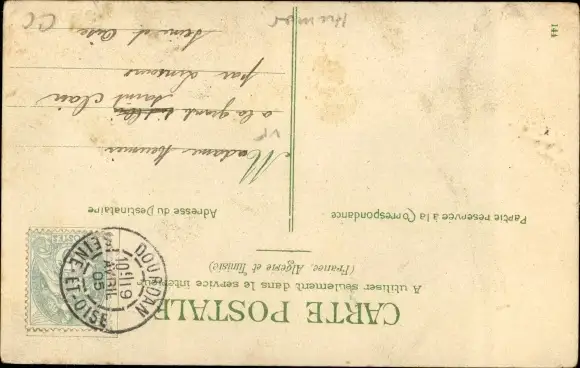 CARTE POSTALE
A utiliser seulement dans le service intérieur
(France, Algérie et Tunisie)
Partie réservée à la Correspondance
Adresse du Destinataire
DOURDAN
10 19
AVRIL
05
SEINE-ET-OISE
Madame
a la grand
Saint Clair
par
Seine et Oise
144